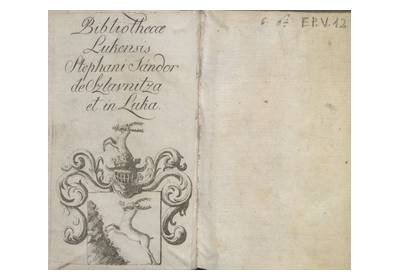 Bibliothecæ
Lukensis
Stephani Sándor
de Szlavnitza
et in Luka.
E.P.V.12